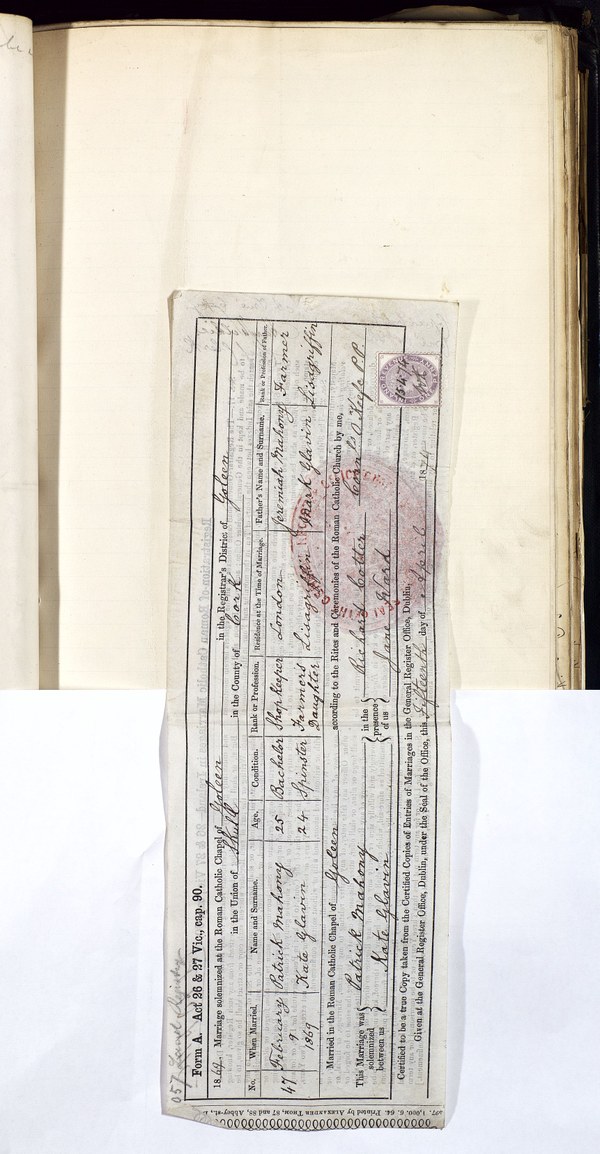 Form A. Act 26 & 27 Vic., cap. 90.
1869. Marriage solemnized at the Roman Catholic Chapel of Goleen in the Registrar's District of Goleen
in the Union of Skull in the County of Cork
No. When Married. Name and Surname. Age. Condition. Rank or Profession. Residence at the Time of Marriage. Father's Name and Surname. Rank or Profession of Father.
47 February 9 1869 Patrick Mahony 25 Bachelor Shop Keeper London Jeremiah Mahony Farmer
Kate Glavin 24 Spinster Farmers Daughter Lisagriffin Mark Glavin Lisagriffin
Married in the Roman Catholic Chapel of Goleen according to the Rites and Ceremonies of the Roman Catholic Church by me,
This Marriage was solemnized between us Patrick Mahony Kate Glavin in the presence of us Richard Cotter Jane Ward Corn's O'Keefe P.P.
Certified to be a true Copy taken from the Certified Copies of Entries of Marriages in the General Register Office, Dublin.
Given at the General Register Office, Dublin, under the Seal of the Office, this Fifteenth day of April 1874
15.4.74
1,000. 6. 64. Printed by Alexander Thom, 87 and 88, Abbey-st.,